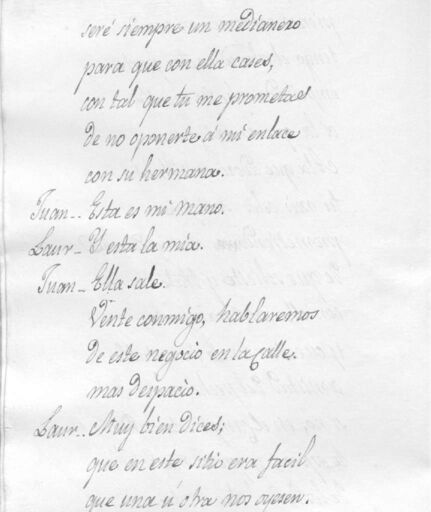 seré siempre un medianero
para que con ella cases,
con tal que tu me prometas
de no oponerte á mi enlace
con su hermana.
Juan-. Esta es mi mano.
Laur- Y esta la mia.
Juan- Ella sale.
Vente conmigo, hablaremos
de este negocio en la calle.
mas despacio.
Laur-. Muy bien dices;
que en este sitio era facil
que una ú otra nos oyesen.